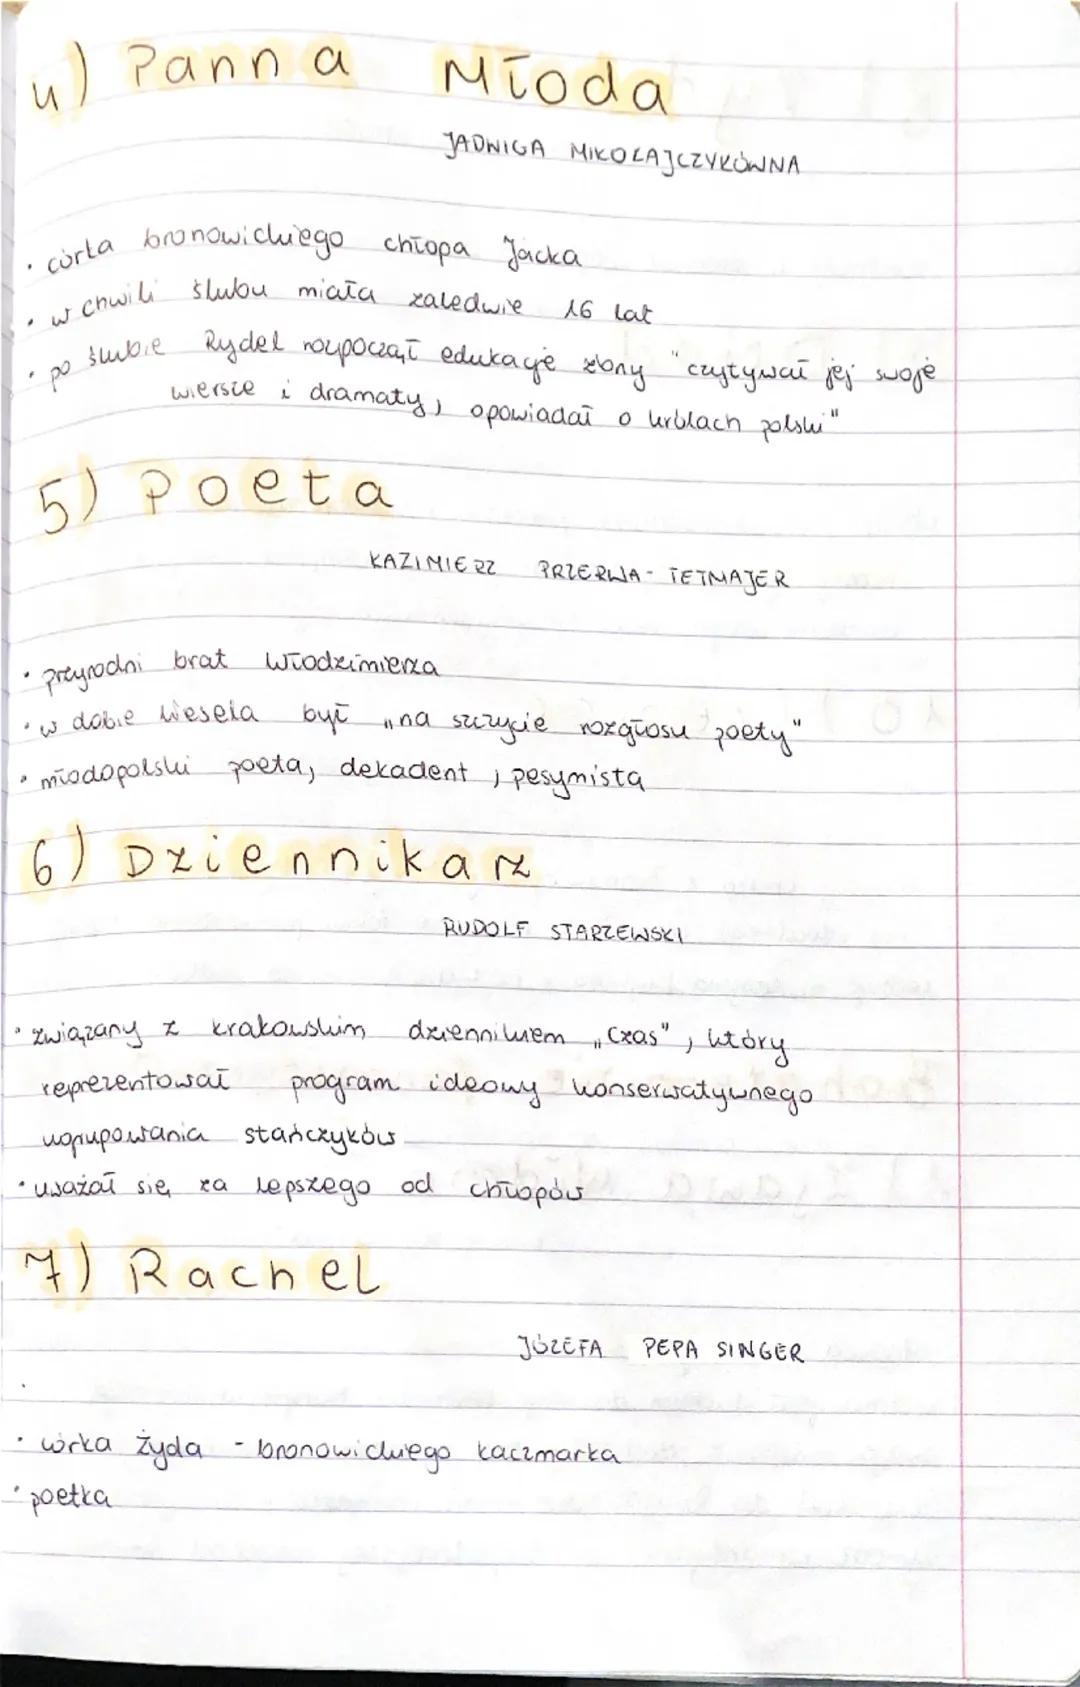 4) Panna Młoda
JADWIGA MIKOŁAJCZYKÓWNA
• córka bronowickiego chłopa Jacka
• w chwili ślubu miała zaledwie 16 lat
• po ślubie Rydel rozpoczął edukację żony "czytywał jej swoje
wiersze i dramaty, opowiadał o królach polski"
5) Poeta
KAZIMIERZ PRZERWA-TETMAJER
• przyrodni brat Włodzimierza
• w dobie Wesela był „na szczycie rozgłosu poety"
• młodopolski poeta, dekadent, pesymista
6) Dziennikarz
RUDOLF STARZEWSKI
• związany z krakowskim dziennikiem „Czas", który
reprezentował program ideowy konserwatywnego
ugrupowania stańczyków
• uważał się za lepszego od chłopów
7) Rachel
JÓZEFA PEPA SINGER
• córka Żyda - bronowickiego kaczmarka
• poetka